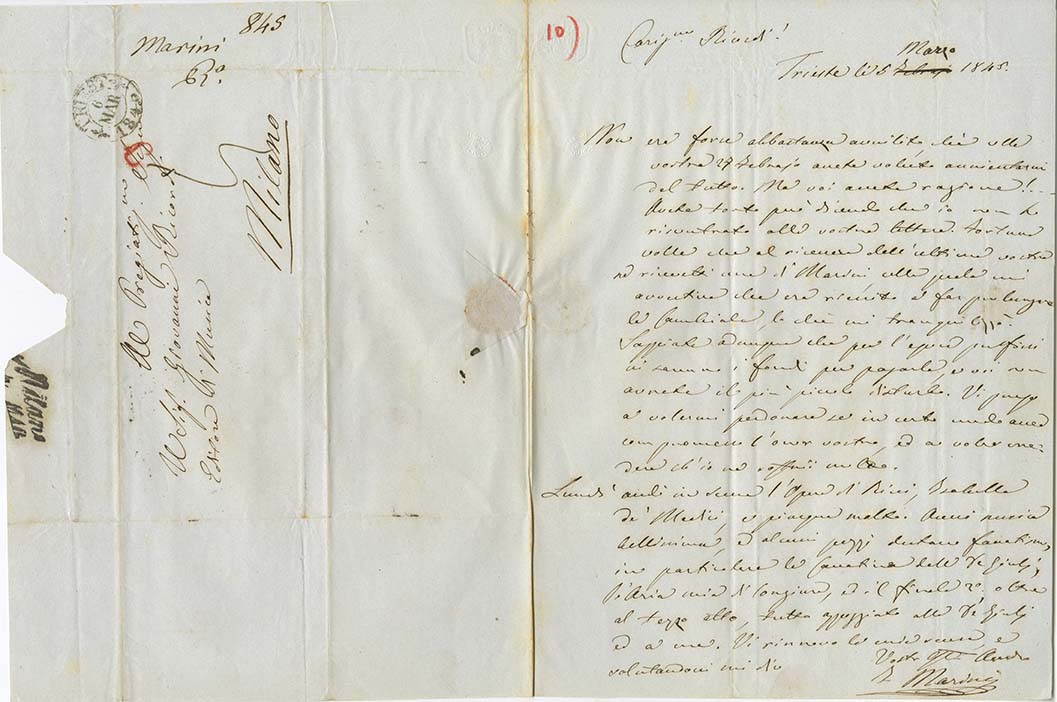 Marini 845
Milano
TRIEST
6
MAR
Al Pregiatissmo Signor
Il Sigr Giovanni Ricordi
Editore di Musica
Milano
MAR
10)
Carismo Ricordi!
Marzo
Trieste li 5 Febrajo 1845.
Non ero forse abbastanza avvilito chè colla
vostra 27 Febrajo avete voluto annientarmi
del tutto. Ma voi avete ragione!
Anche tanto può dicendo che io non ho
riscontrato alle vostre lettere. Fortuna
volle che al ricevere dell'ultima vostra
ne ricevetti una di Marini colla quale mi
avvertiva che era riuscito a far prolungare
la Cambiale, lo chè mi tranquillizzò.
Sappiate adunque che per l'epoca prefissa
vi saranno i fondi per pagarla, e voi non
avrete il più piccolo disturbo. Vi prego
a volermi perdonare se in certo modo aveva
compromesso l'onor vostro, ed a voler cre-
dere ch'io ne soffrii molto.
Lunedì andò in scena l'Opera di Ricci, Isabella
de' Medici, e piacque molto. Avvi musica
bellissima, ed alcuni pezzi destano fanatismo,
in particolare la Cavatina della De Giulj,
l'Aria mia di Congiura, ed il finale 2º oltre
al terzo atto, tutto appoggiato alla De Giulj
ed a me. Vi rinnovo le mie scuse, e
salutandovi mi dico
Vostro
Marini